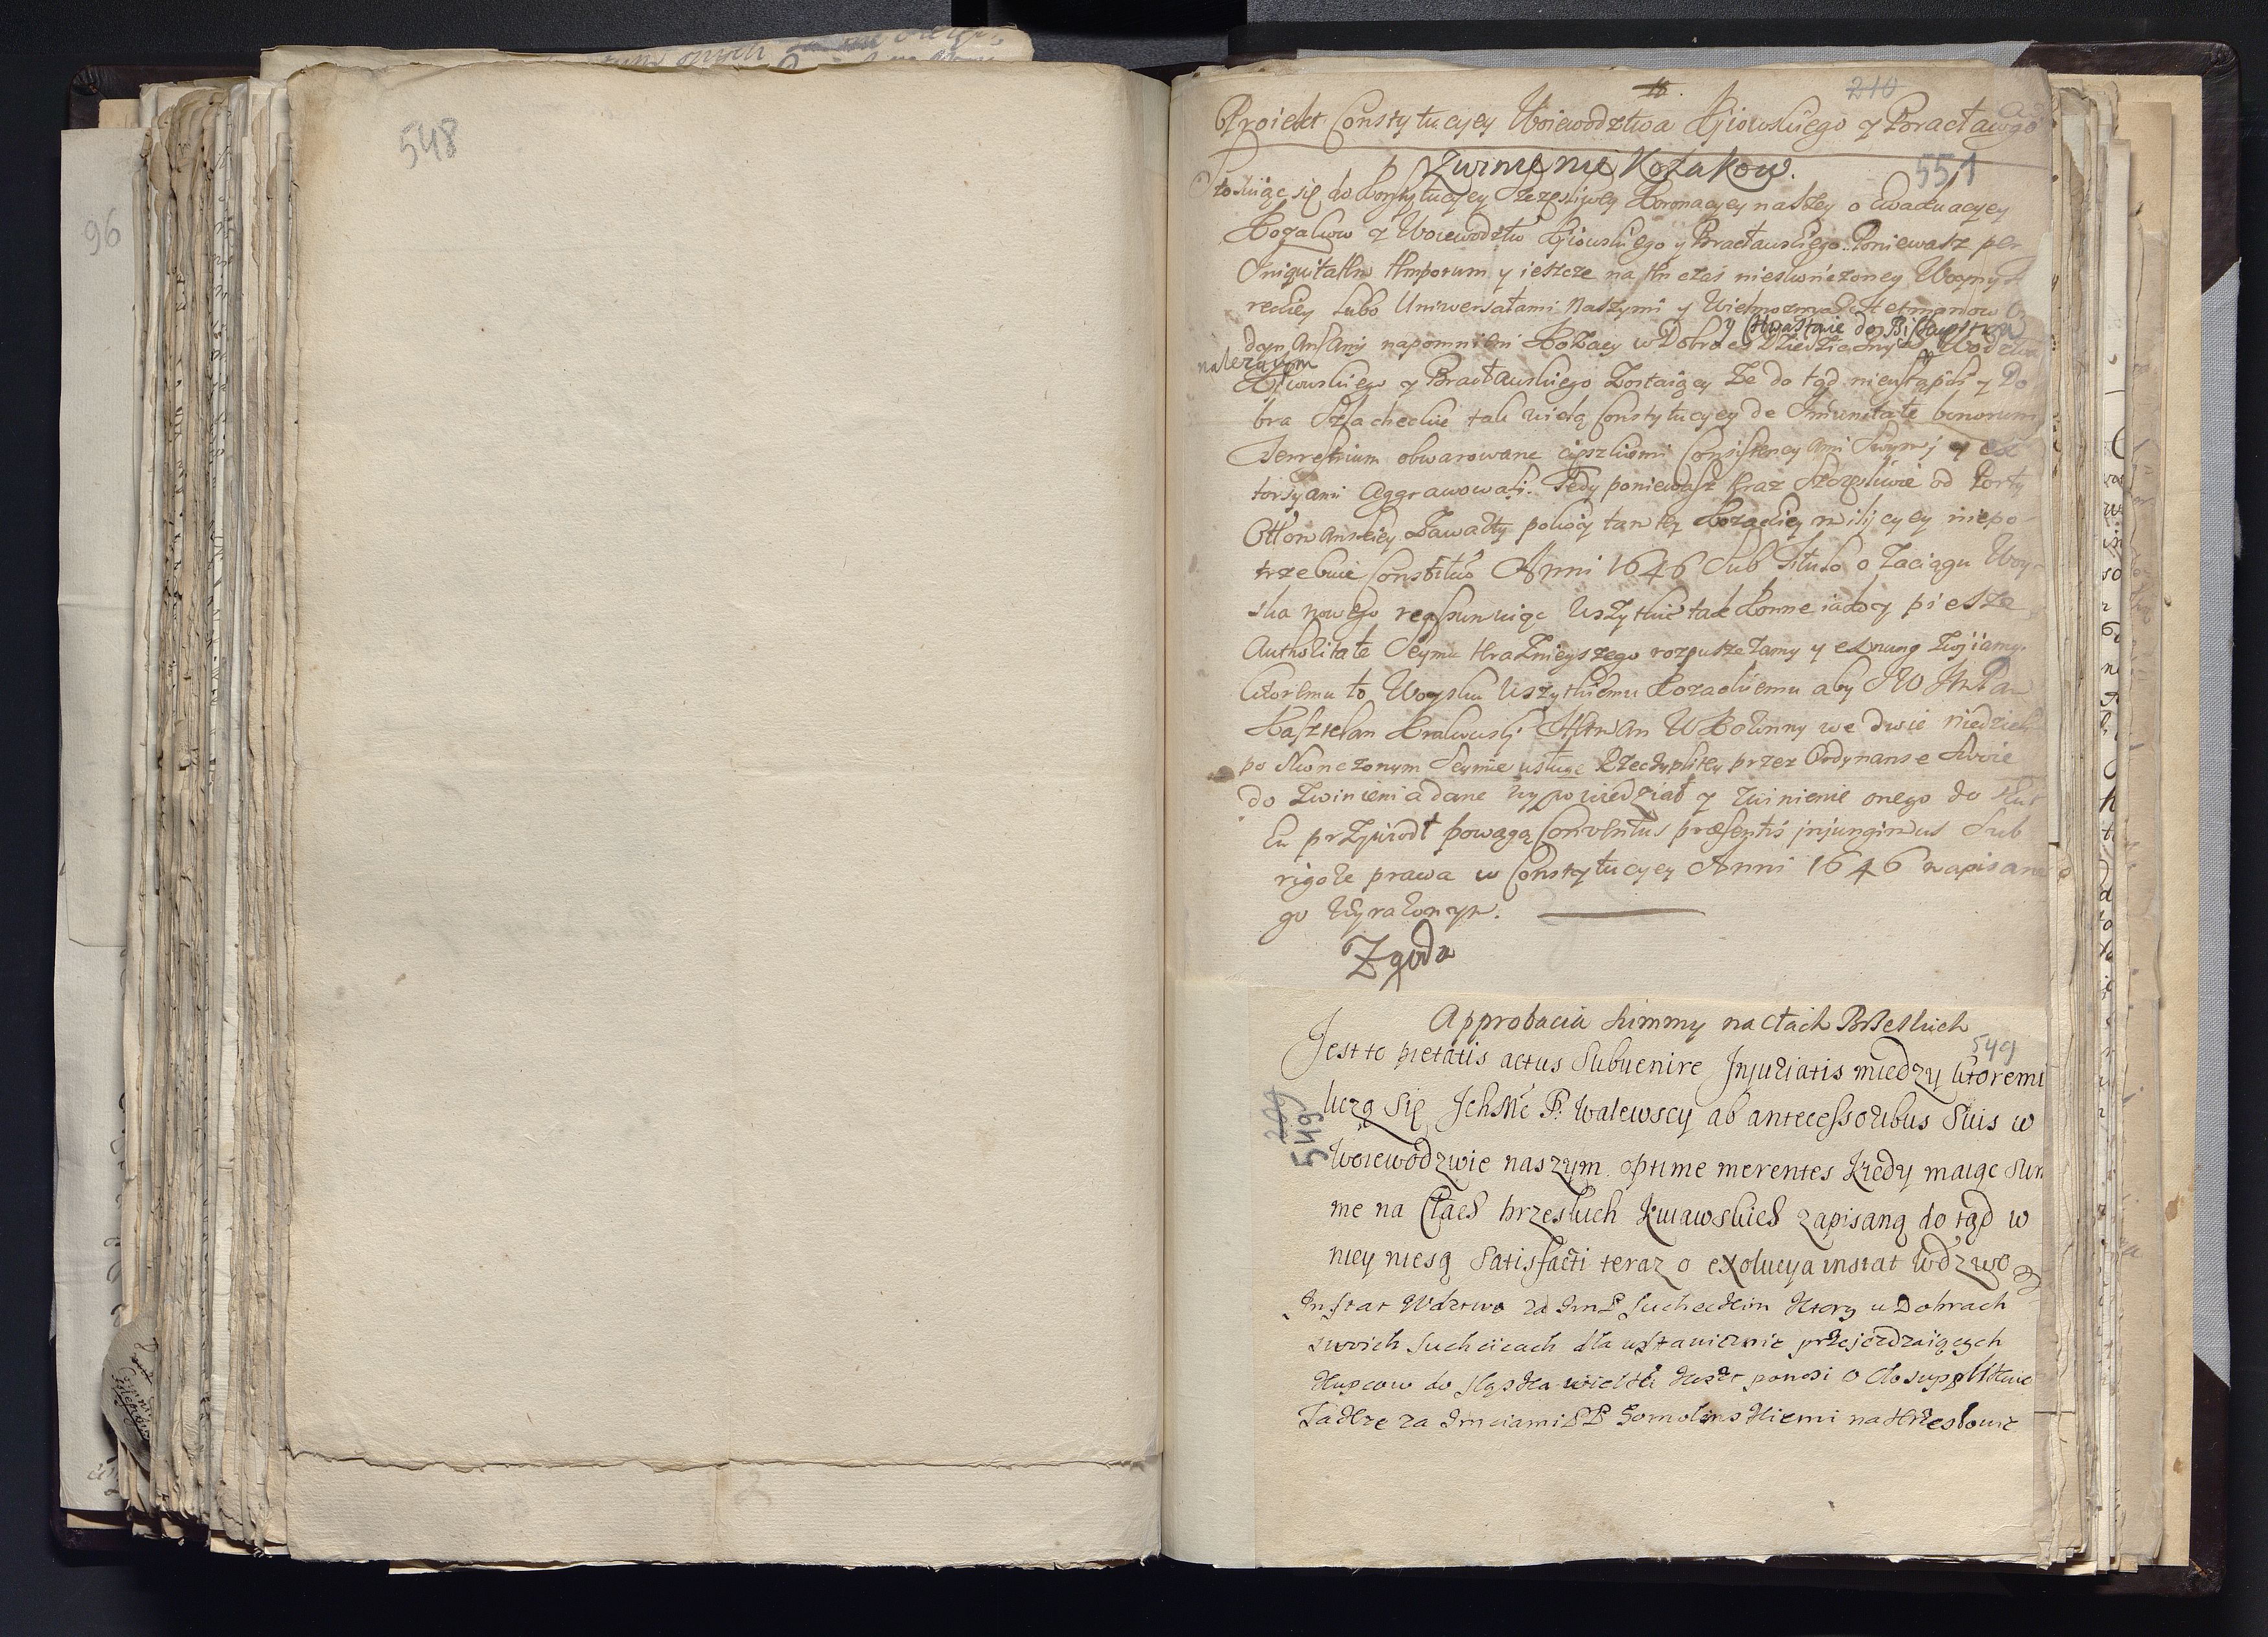 548
96
210
Proiekt Constytucyey Woiewodztwa Kjiowskiego y Bracławgo
Zwinienie Kozakow.
551
Stosuiąc się do Constytucyey Szczęsliwey Koronacyey naszey o Ewacuacyey
Kozakow z Woiewodztw Kjiowskiego y Bracławskiego. Poniewasz per
Iniquitatem temporum y ieszcze na ten czas nieskończoney Woyny
reckiey lubo Uniwersałami Naszymi y Wielmoznych Hetmanow
y Chwastowie do Biskupstwa
dynansamj napomnieni Kozacy w Dobrach Dziedzicznych Wodztwa
nalezącym
Kijowskiego y Bracławskiego Zostaiący Ze do tąd nieustąpili y Do
bra Szlacheckie tak wielą Constytucyey de Imunitate bonorum
Terrestrium obwarowane cięszkiemi Consistencyami Swymj y ex
torsyami Aggrawowali. Tedy poniewasz teraz Szczęsliwie od Porty
Ottomanskiey Zawarty pokoy tantey Kozackiey milicyey niepo
trzebuie Constitutio Anni 1646 Sub Titulo o Zaciągu Woy
ska nowego reassumuiąc Wszytkie tak Konne iako y piesze
Authoritate Seymu teraznieyszego rozpuszczamy y ex nunc Zwiiamy.
Ktoremu to Woysku Wszytkiemu Kozackiemu aby JW JmPan
Kasztelan Krakowskj Hetman W Koronny we dwie niedzieli
po Skonczonym Seymie usługę Rzeczyplitey przez Ordynanse Swoie
do Zwinienia dane wypowiedział y zwinienie onego do Skut
ku przywiodł powagą Conventus præsentis injungimus Sub
rigore prawa w Constytucyey Anni 1646 napisane
go Wyrazonym.
Zgoda
Approbacia Summy na Cłach Brzeskich
549
Jest to pietatis actus Subuenire Injuriatis miedzy ktoremi
liczą się Jchmć P: Walewscy ab antecessoribus Suis w
549
Woiewodzwie naszym optime merentes kiedy maiąc Sum
me na Cłach brzeskich Kuiawskich zapisaną do tąd w
niey niesą Satisfacti teraz o exolucyą instat Wdzwo
Instat Wdztwo za JmP Sucheckim ktory u Dobrach
swoich Suchcicach dla ustawicznie przejezdzaiących
Kupcow do Sląska wielki koszt ponosi o Clo supplikuie
Takze za Jmciami PP Gomolinskiemi na Krzeslowie